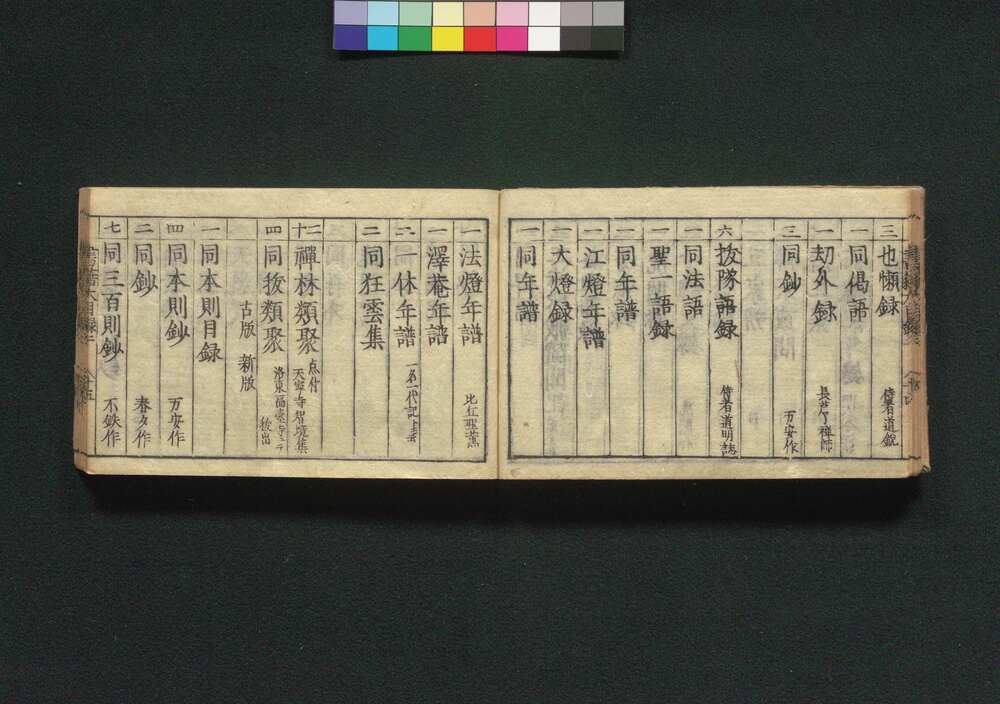 三 也懶録 侍者道鋭
一 同偈語
一 刧外録 長芦了禅師
三 同鈔 万安作
六 抜隊語録 侍者道明誌
一 同法語
一 聖一語録
一 同年譜
一 江燈年譜
一 大燈録
一 同年譜
一 法燈年譜 比丘聖薫
一 澤菴年譜
二 一休年譜 一名一代記ト云
二 同狂雲集
十二 禪林類聚 点付 天寧寺智境集
四 同抜類聚 洛東福寺ニテ抜出
古版 新版
一 同本則目録
四 同本則鈔 万安作
二 同鈔 春夕作
七 同三百則鈔 不鉄作